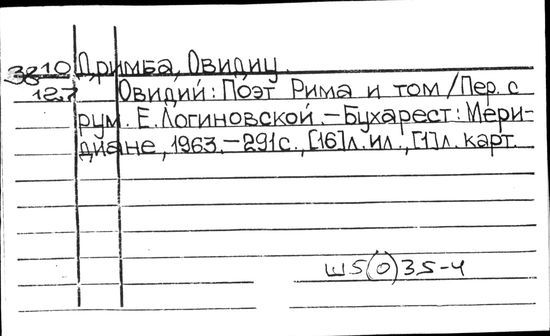 3810 Дримба, Овидиу.
12.7 Овидий: Поэт Рима и том / Пер. с
рум. Е. Логиновской. – Бухарест: Мери-
диане, 1963. – 291 с., [16] л. ил., [1] л. карт.
Ш5(0)35-4